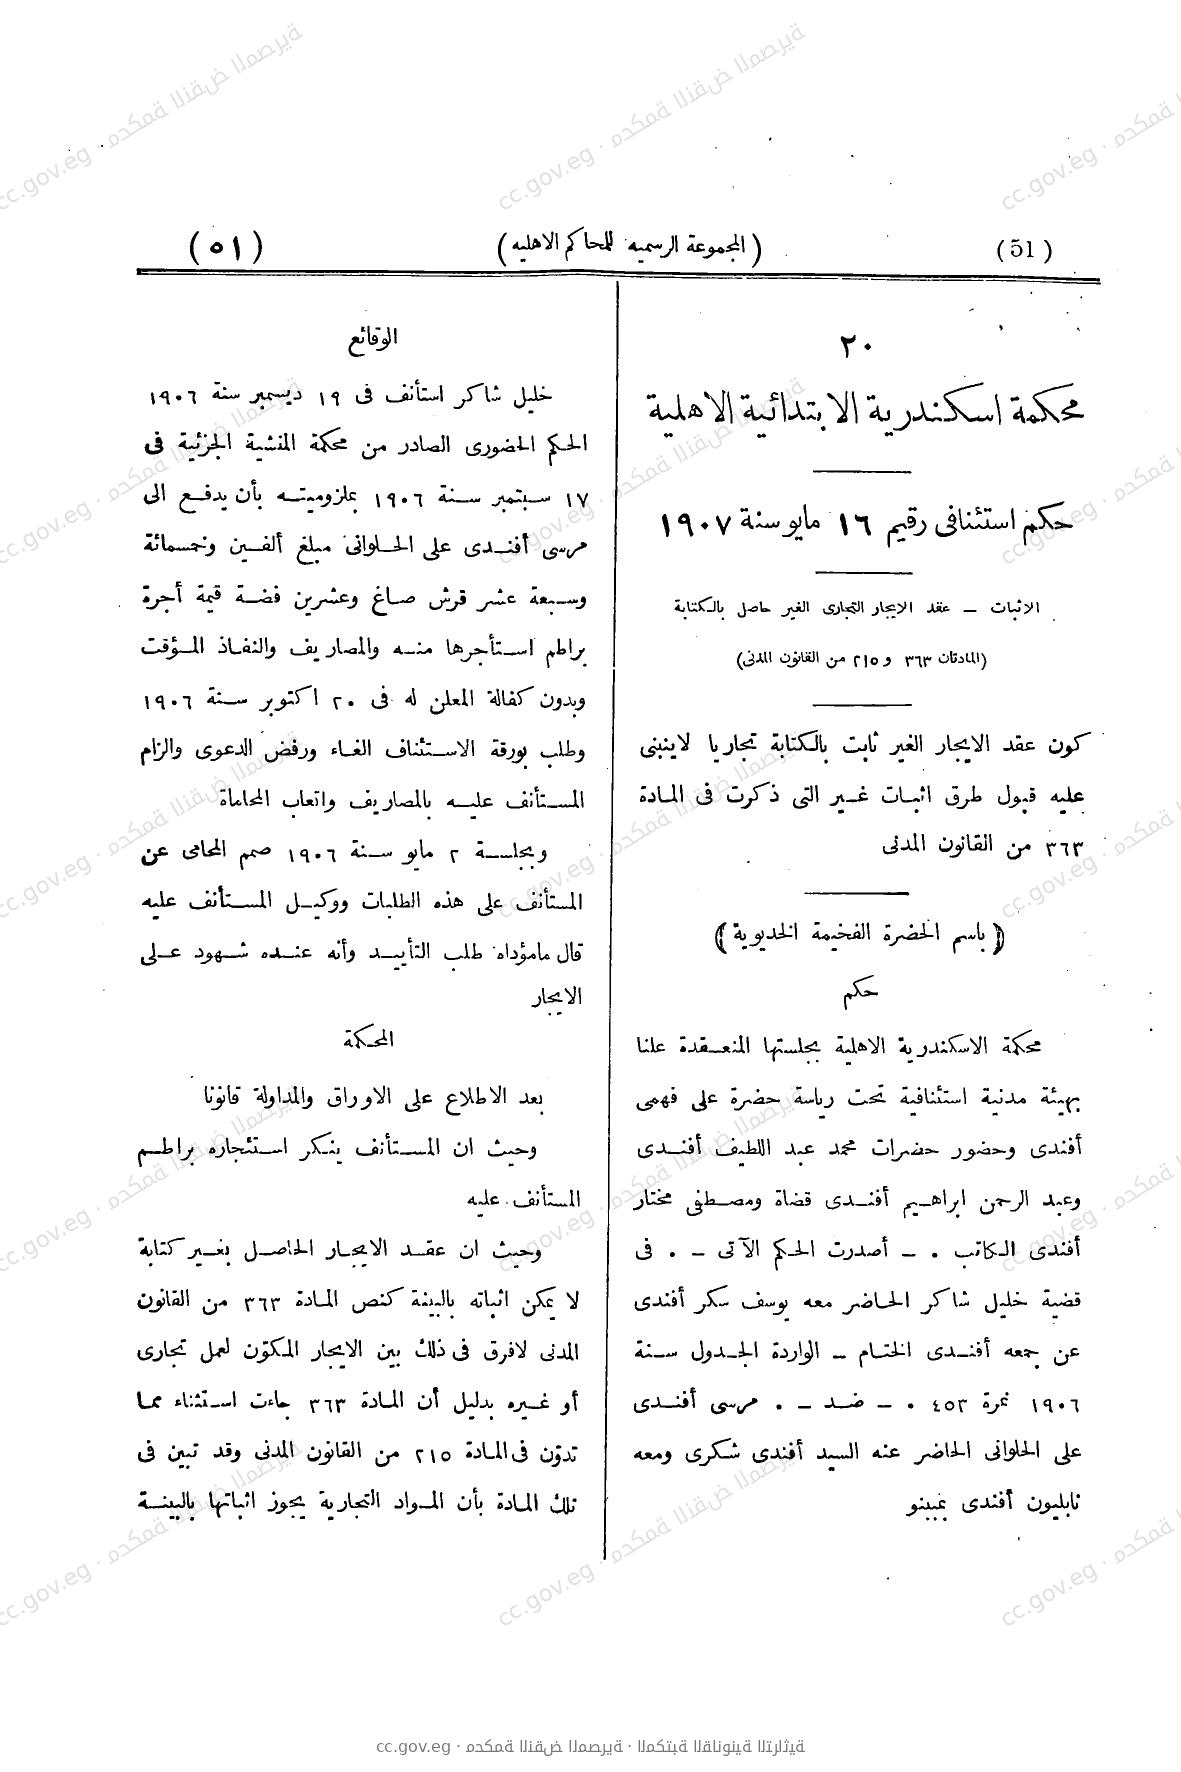 (51)
(المجموعة الرسميه للمحاكم الاهليه)
(٥١)
٢٠
محكمة اسكندرية الابتدائية الاهلية
حكم استئنافى رقيم ١٦ مايو سنة ١٩٠٧
الاثبات ــ عقد الايجار التجارى الغير حاصل بالكتابة
(المادتان ٣٦٣ و ٢١٥ من القانون المدنى)
كون عقد الايجار الغير ثابت بالكتابة تجاريا لاينبنى
عليه قبول طرق اثبات غير التى ذكرت فى المادة
٣٦٣ من القانون المدنى
(باسم الحضرة الفخيمة الخديوية)
حكم
محكمة الاسكندرية الاهلية بجلستها المنعقدة علنا
بهيئة مدنية استئنافية تحت رياسة حضرة على فهمى
أفندى وحضور حضرات محمد عبد اللطيف أفندى
وعبد الرحمن ابراهيم أفندى قضاة ومصطفى مختار
أفندى الكاتب . ــ أصدرت الحكم الآتى ــ . فى
قضية خليل شاكر الحاضر معه يوسف سكر أفندى
عن جمعه أفندى الختام ــ الواردة الجدول سنة
١٩٠٦ نمرة ٤٥٣ . ــ ضد ــ . مرسى أفندى
على الحلوانى الحاضر عنه السيد أفندى شكرى ومعه
نابليون أفندى بمبينو
الوقائع
خليل شاكر استأنف فى ١٩ ديسمبر سنة ١٩٠٦
الحكم الحضورى الصادر من محكمة المنشية الجزئية فى
١٧ سبتمبر سنة ١٩٠٦ بملزوميته بأن يدفع الى
مرسى أفندى على الحلوانى مبلغ ألفين وخمسمائة
وسبعة عشر قرش صاغ وعشرين فضة قيمة أجرة
براطم استأجرها منه والمصاريف والنفاذ المؤقت
وبدون كفالة المعلن له فى ٢٠ اكتوبر سنة ١٩٠٦
وطلب بورقة الاستئناف الغاء ورفض الدعوى والزام
المستأنف عليه بالمصاريف واتعاب المحاماة
وبجلسة ٢ مايو سنة ١٩٠٦ صمم المحامى عن
المستأنف على هذه الطلبات ووكيل المستأنف عليه
قال مامؤداه طلب التأييد وأنه عنده شهود على
الايجار
المحكمة
بعد الاطلاع على الاوراق والمداولة قانونا
وحيث ان المستأنف ينكر استئجاره براطم
المستأنف عليه
وحيث ان عقد الايجار الحاصل بغير كتابة
لا يمكن اثباته بالبينة كنص المادة ٣٦٣ من القانون
المدنى لافرق فى ذلك بين الايجار المكون لعمل تجارى
أو غيره بدليل أن المادة ٣٦٣ جاءت استثناء مما
تدوّن فى المادة ٢١٥ من القانون المدنى وقد تبين فى
تلك المادة بأن المواد التجارية يجوز اثباتها بالبينة
cc.gov.eg · محكمة النقض المصرية · المكتبة القانونية التراثية